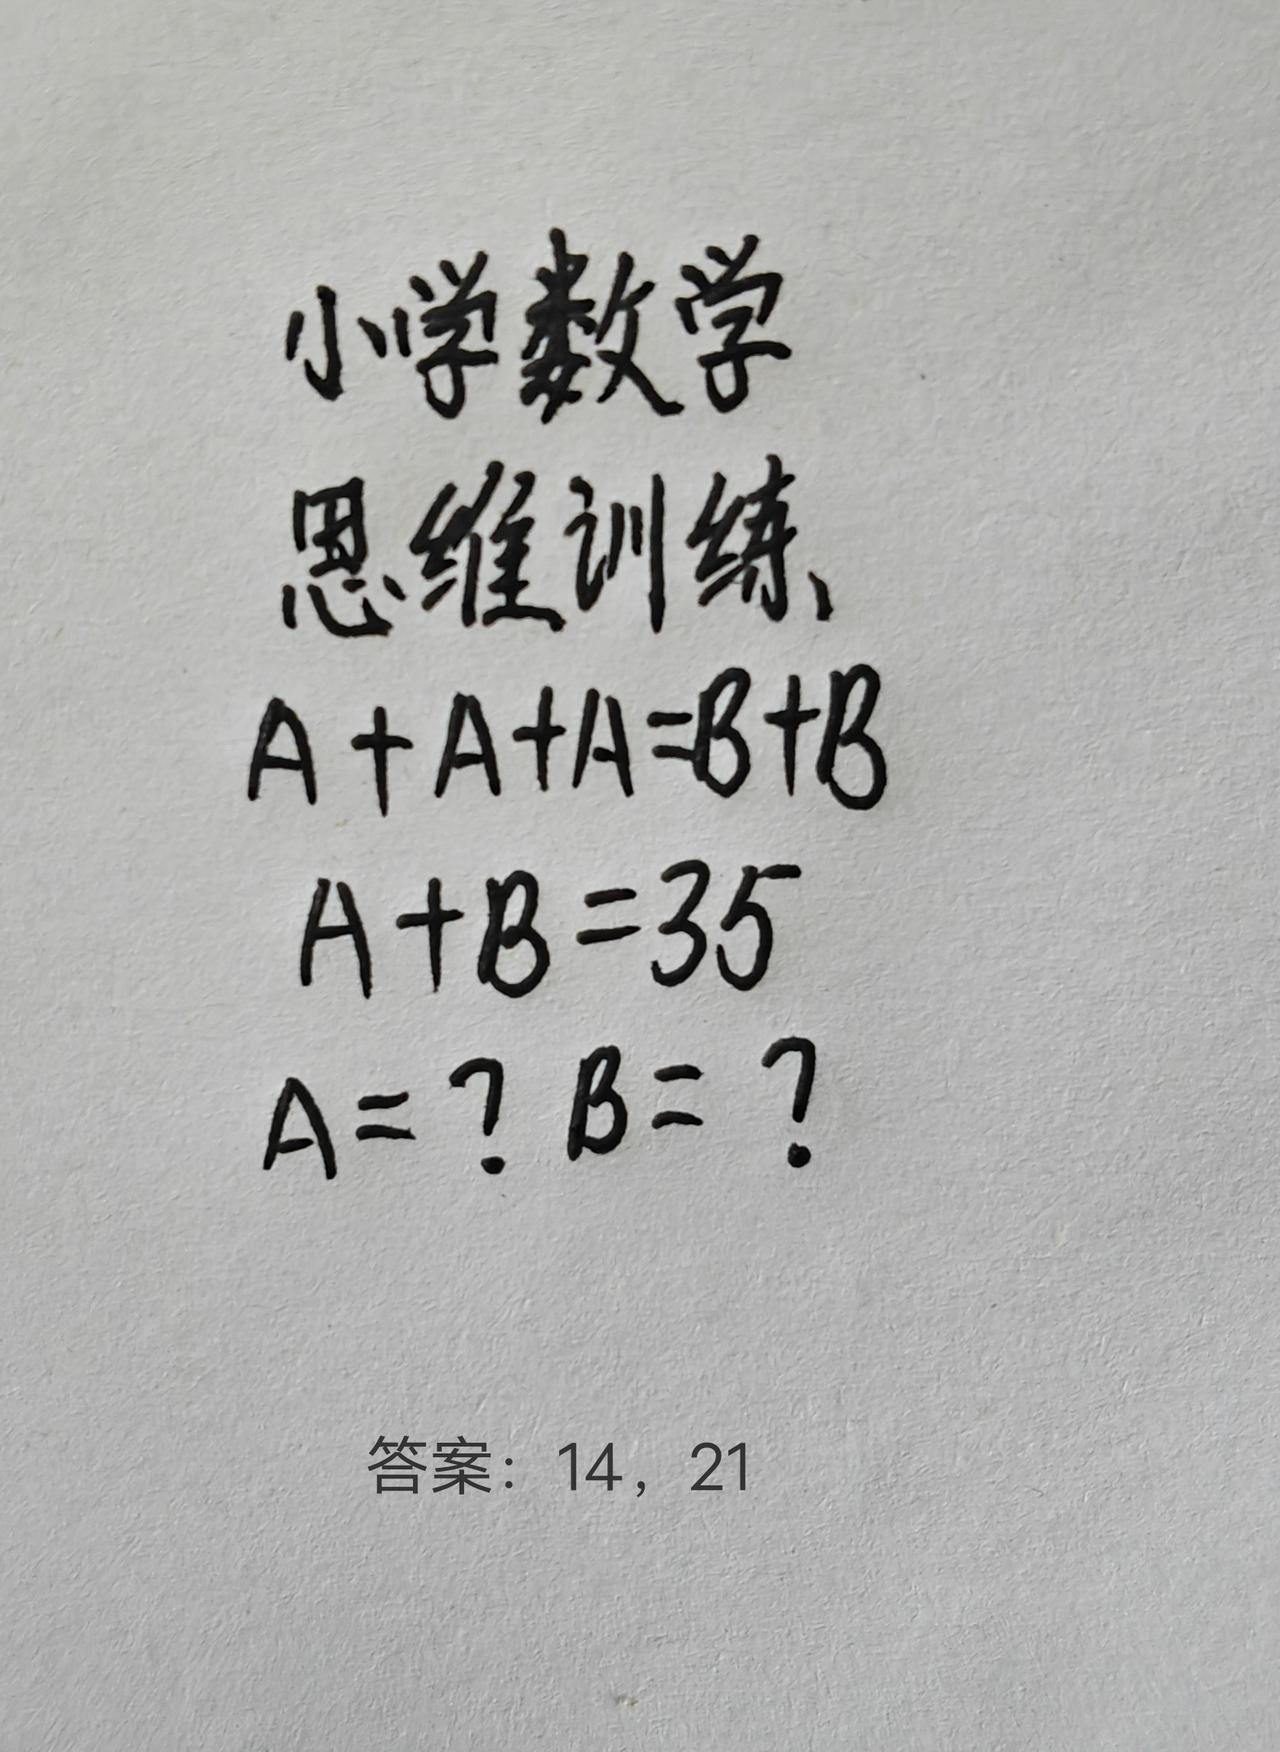 小学数学
思维训练、
A+A+A=B+B
A+B=35
A=? B=?
答案：14，21